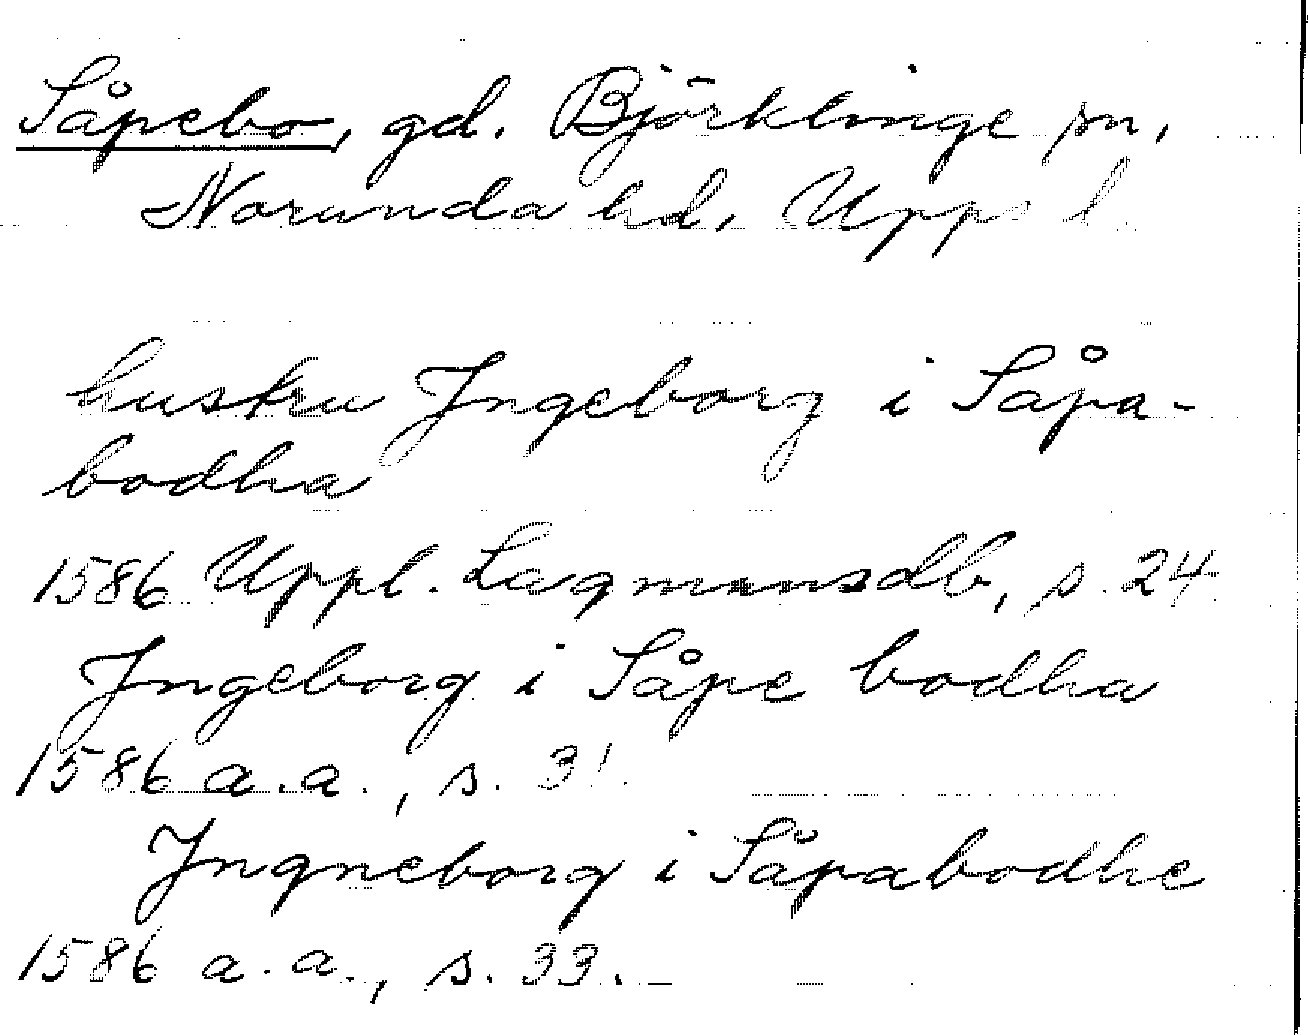 Såpebo, gd. Björklinge sn,
Norunda hd. Upps l.
hustru Ingeborg i Såpa-
bodha
1586 Uppl. Lagmansdb, s. 24
Ingeborg i Såpe bodha
1586 a.a., s. 31.
Ingneborg i Såpabodhe
1586 a.a., s. 33.